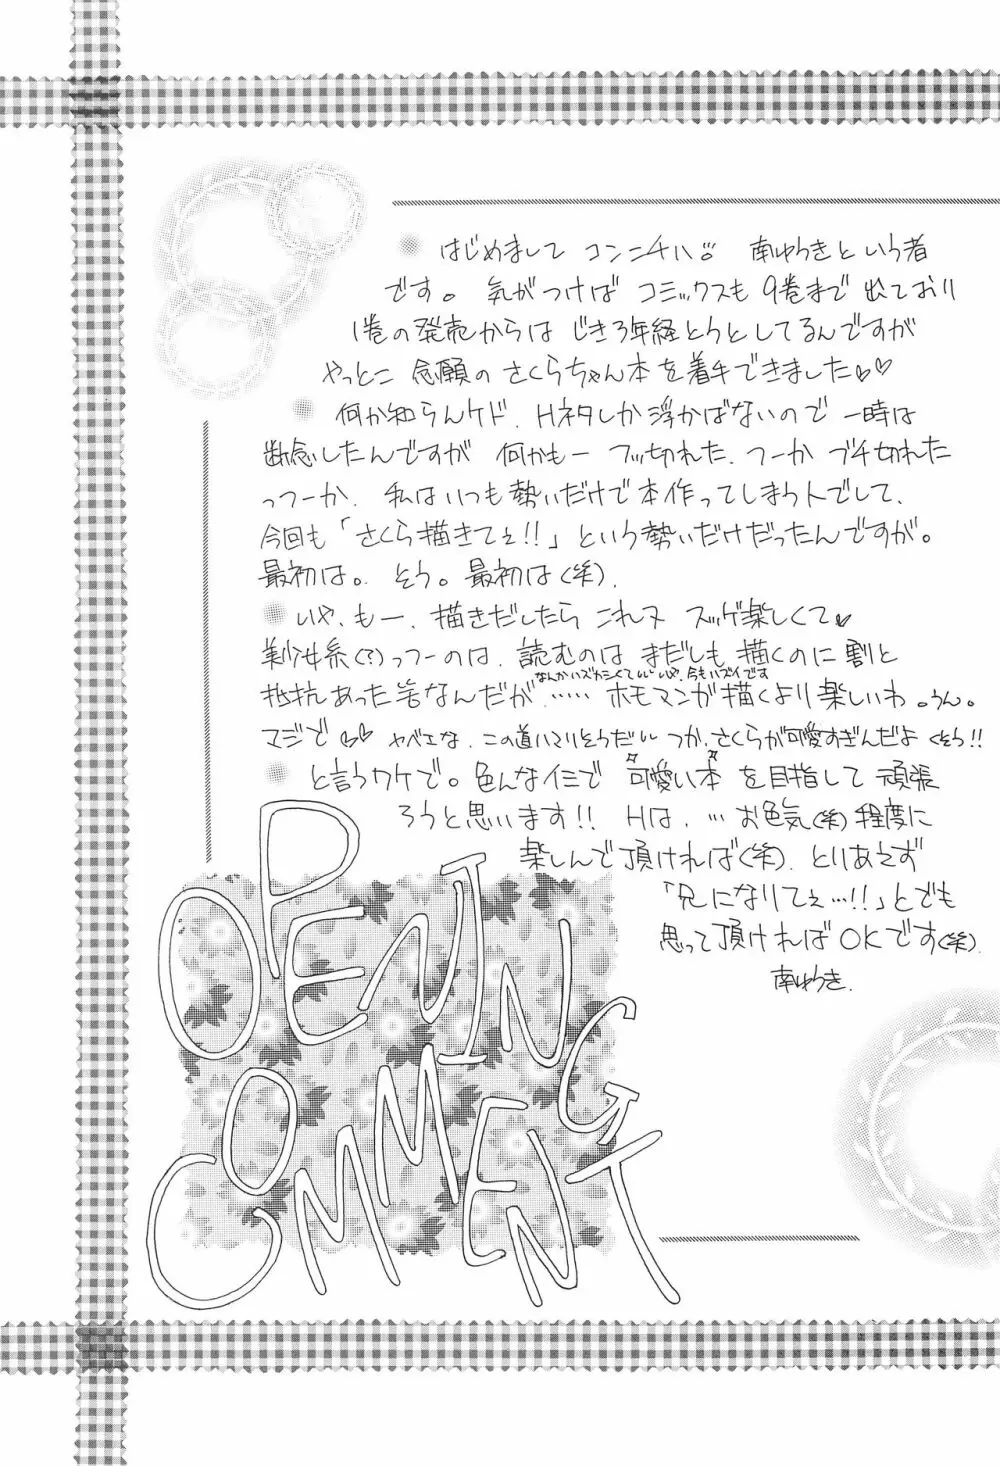 はじめまして コンニチハ。 南ゆうきという者
です。 気がつけば コミックスも 9巻まで 出ており
1巻の発売からは じき3年経とうとしてるんですが
やっとこ 念願の さくらちゃん本を着手できました♡♡
何か知らんケド、Hネタしか浮かばないので 一時は
断念したんですが 何かもー フッ切れた、つーか ブチ切れた
っつーか、 私はいつも勢いだけで本作ってしまう人でして、
今回も「さくら描きてぇ!!」という勢いだけだったんですが。
最初は。 そう。最初は(笑)。
いや、もー、描きだしたら これヌ スッゲ楽しくて♡
美少女系(?)っつーのは、読むのは まだしも 描くのに割と
なんかハズカシくて いや、今もハズイです
抵抗あった筈なんだが……ホモマンガ描くより楽しいわ。うん。
マジで♡♡ ヤベェな、この道ハマりそうだい つか、さくらが可愛すぎんだよ くそう!!
と言うワケで。色んなイミで 可愛い本 を目指して 頑張
ろうと思います!! Hは、…お色気(笑)程度に
楽しんで頂ければ(笑)。とりあえず
「兄になりてぇ…!!」とでも
思って頂ければOKです(笑)。
南ゆうき.
OPENING
COMMENT